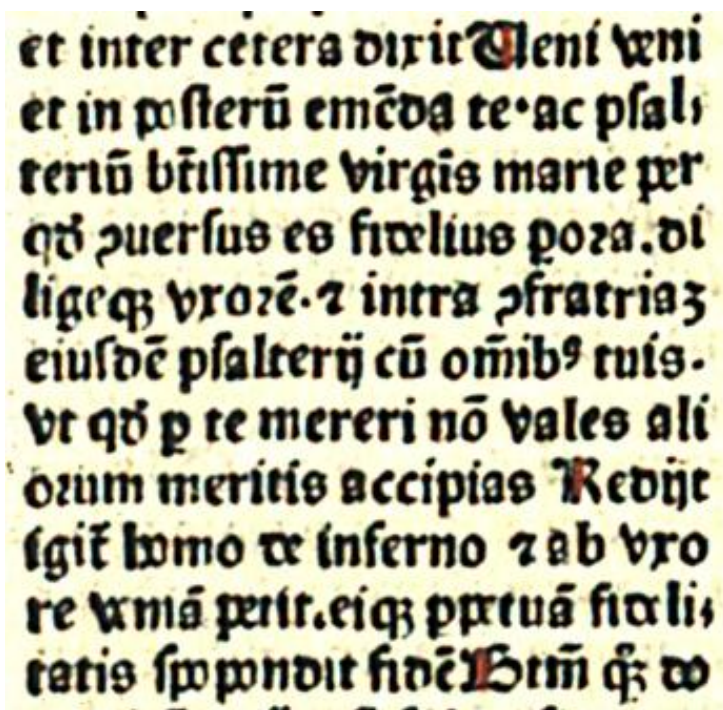 et inter cetera dixit Ueni veni
et in posterū emēda te·ac psal⸗
teriū bt̄issime virgīs marie per
qđ ꝯuersus es fidelius ꝑora.di
ligeqꝫ vxorē·⁊ intra ꝯfratriaꝫ
eiusdē psalterij cū om̄ibꝰ tuis.
vt qđ ꝑ te mereri nō vales ali
orum meritis accipias Redijt
igit̄ homo de inferno ⁊ ab vxo
re veniā petit.eiqꝫ ꝑpetuā fideli⸗
tatis spopondit fidē Btm̄ qꝫ do